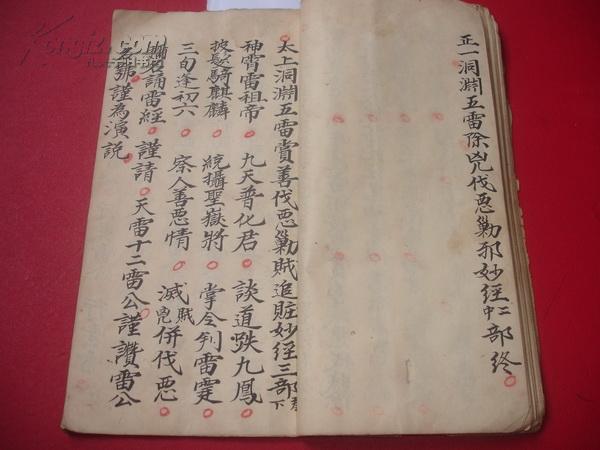 正一洞淵五雷除兇伐惡勦邪妙經中二部終
太上洞淵五雷賞善伐惡勦賊追賍妙經三部下
神霄雷祖帝 九天普化君 談道趺九鳳
披髮騎麒麟 統攝聖嶽將 掌令判雷霆
三旬逢初六 察人善惡情 滅賊兇併伐惡
誦雷經 謹請 天雷十二雷公謹讚雷公
名號謹為演說